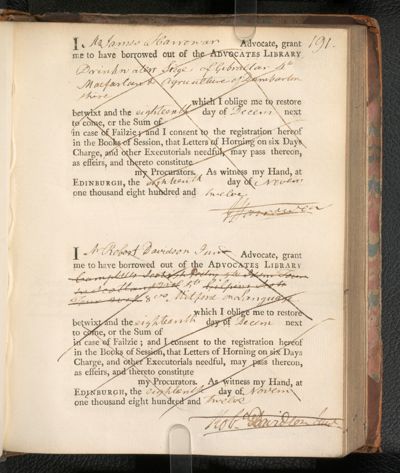 191.
I, Mr James Advocate, grant
me to have borrowed out of the ADVOCATES LIBRARY
Drinkwater Siege of Gibraltar 4to
Macfarlan's Agriculture of Dumbarton
shire
which I oblige me to restore
betwixt and the eighteenth day of Decem next
to come, or the Sum of
in case of Failzie; and I consent to the registration hereof
in the Books of Session, that Letters of Horning on six Days
Charge, and other Executorials needful, may pass thereon,
as effeirs, and thereto constitute
my Procurators. As witness my Hand, at
EDINBURGH, the eighteenth day of Novem
one thousand eight hundred and twelve
I, Mr Robert Davidson Junr Advocate, grant
me to have borrowed out of the ADVOCATES LIBRARY
Campbells
in Scotland
8vo, Wilford on languages
which I oblige me to restore
betwixt and the eighteenth day of Decem next
to come, or the Sum of
in case of Failzie; and I consent to the registration hereof
in the Books of Session, that Letters of Horning on six Days
Charge, and other Executorials needful, may pass thereon,
as effeirs, and thereto constitute
my Procurators. As witness my Hand, at
EDINBURGH, the eighteenth day of Novem
one thousand eight hundred and twelve
Robt. Davidson Junr